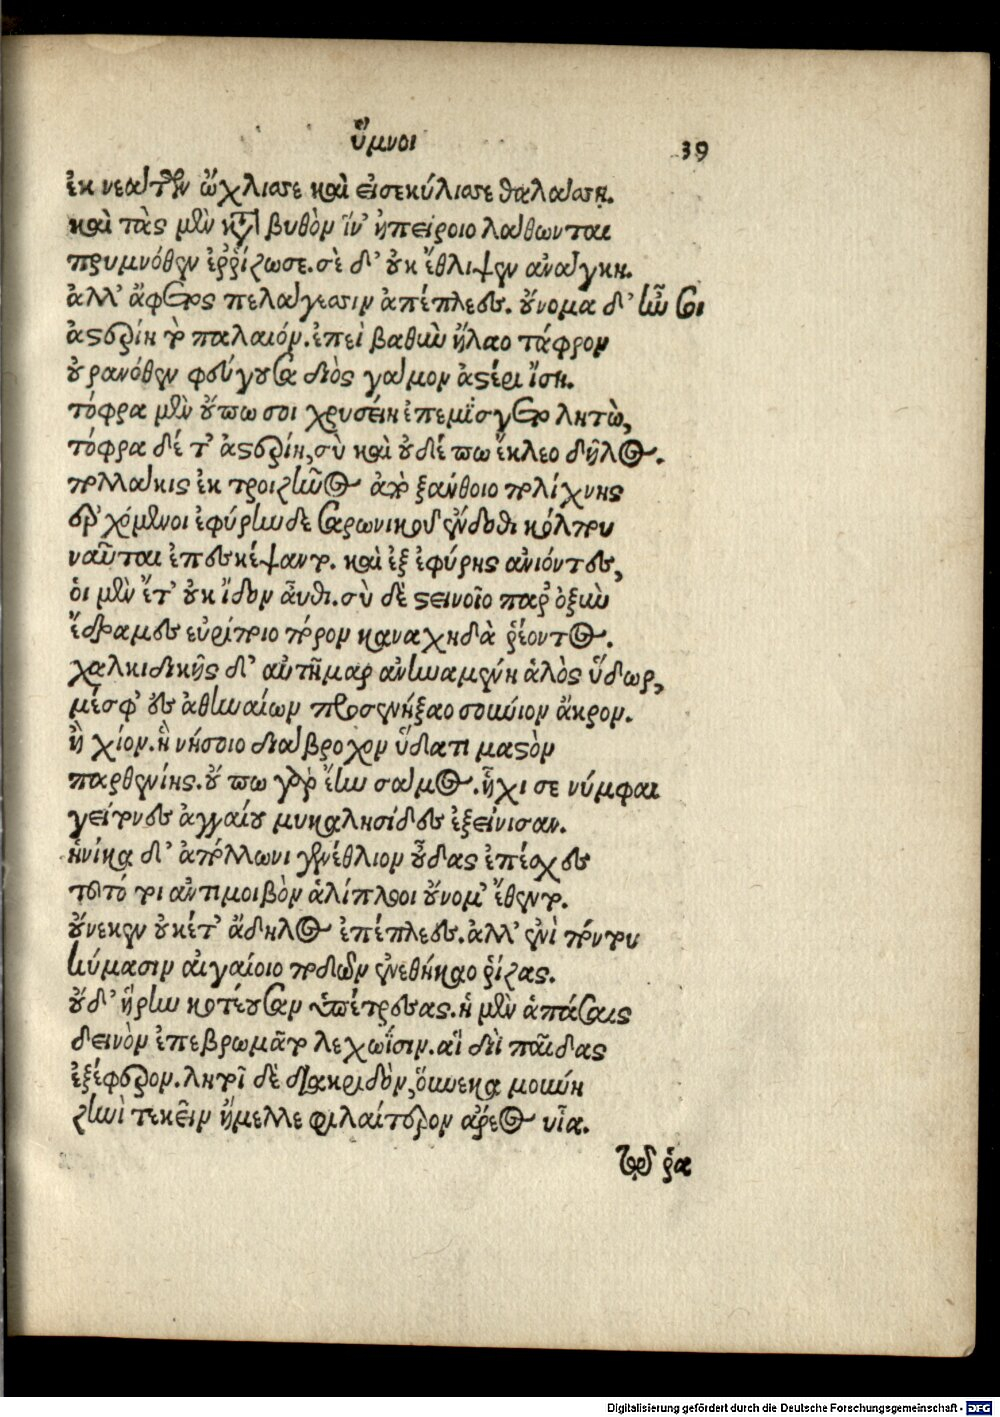 ὕμνοι 39
ἐκ νεάτων ὤχλισσε καὶ εἰσεκύλισσε θαλάσσῃ.
καὶ τὰς μὲν κατὰ βυθὸν ἵν' ἠπείροιο λάθωνται
πρυμνόθεν ἐῤῥίζωσε. σὲ δ' οὐκ ἔθλιψεν ἀνάγκη.
ἀλλ' ἄφετος πελάγεσσιν ἀπέπλεες. οὔνομα δ' ἦν σοι
ἀστερίη τὸ παλαιόν. ἐπεὶ βαθὺν ἤλαο τάφρον
οὐρανόθεν φεύγουσα διὸς γάμον ἀστέρι ἴση.
τόφρα μὲν οὔπω σοι χρυσέη ἐπεμίσγετο λητὼ,
τόφρα δέ τ' ἀστερίη, σὺ καὶ οὐδέ πω ἔκλεο δῆλος.
πολλάκις ἐκ τροιζῆνος ἀπὸ ξάνθοιο πολίχνης
ἐρχόμενοι ἐφύρην δὲ σαρωνικοῦ ἔνδοθι κόλπου
ναῦται ἐπεσκέψαντο. καὶ ἐξ ἐφύρης ἀνιόντες,
οἱ μὲν ἔτ' οὐκ ἴδον αὖθι. σὺ δὲ στεινοῖο παρ' ὀξὺν
ἔδραμες εὐρίποιο πόρον καναχηδὰ ῥέοντος.
χαλκιδικῆς δ' αὐτῆμαρ ἀνηναμένη ἁλὸς ὕδωρ,
μέσφ' ἐς ἀθηναίων προσενήξαο σουνίον ἄκρον.
ἢ χίον. ἢ νήσοιο διάβροχον ὕδατι μαστὸν
παρθενίης. οὔ πω γὰρ ἔην σάμος. ἧχί σε νύμφαι
γείτονες ἀγκαίου μυκαλησίδες ἐξείνισαν.
ἡνίκα δ' ἀπόλλωνι γενέθλιον οὖδας ἐπέσχες
τοῦτό τοι ἀντιμοιβὸν ἁλίπλοοι οὔνομ' ἔθεντο.
οὔνεκεν οὐκέτ' ἄδηλος ἐπέπλεες. ἀλλ' ἐνὶ πόντου
κύμασιν αἰγαίοιο ποδῶν ἐνεθήκαο ῥίζας.
οὐδ' ἥρην κοτέουσαν ὑπέτρεσας. ἡ μὲν ἁπάσαις
δεινὸν ἐπεβρωμᾶτο λεχωΐσιν. αἳ διῒ παῖδας
ἐξέφερον. λητοῖ δὲ διακριδὸν, οὕνεκα μούνη
ζηνὶ τεκεῖν ἤμελλε φιλαίτερον ἄρεος υἷα.
τῷ ῥα